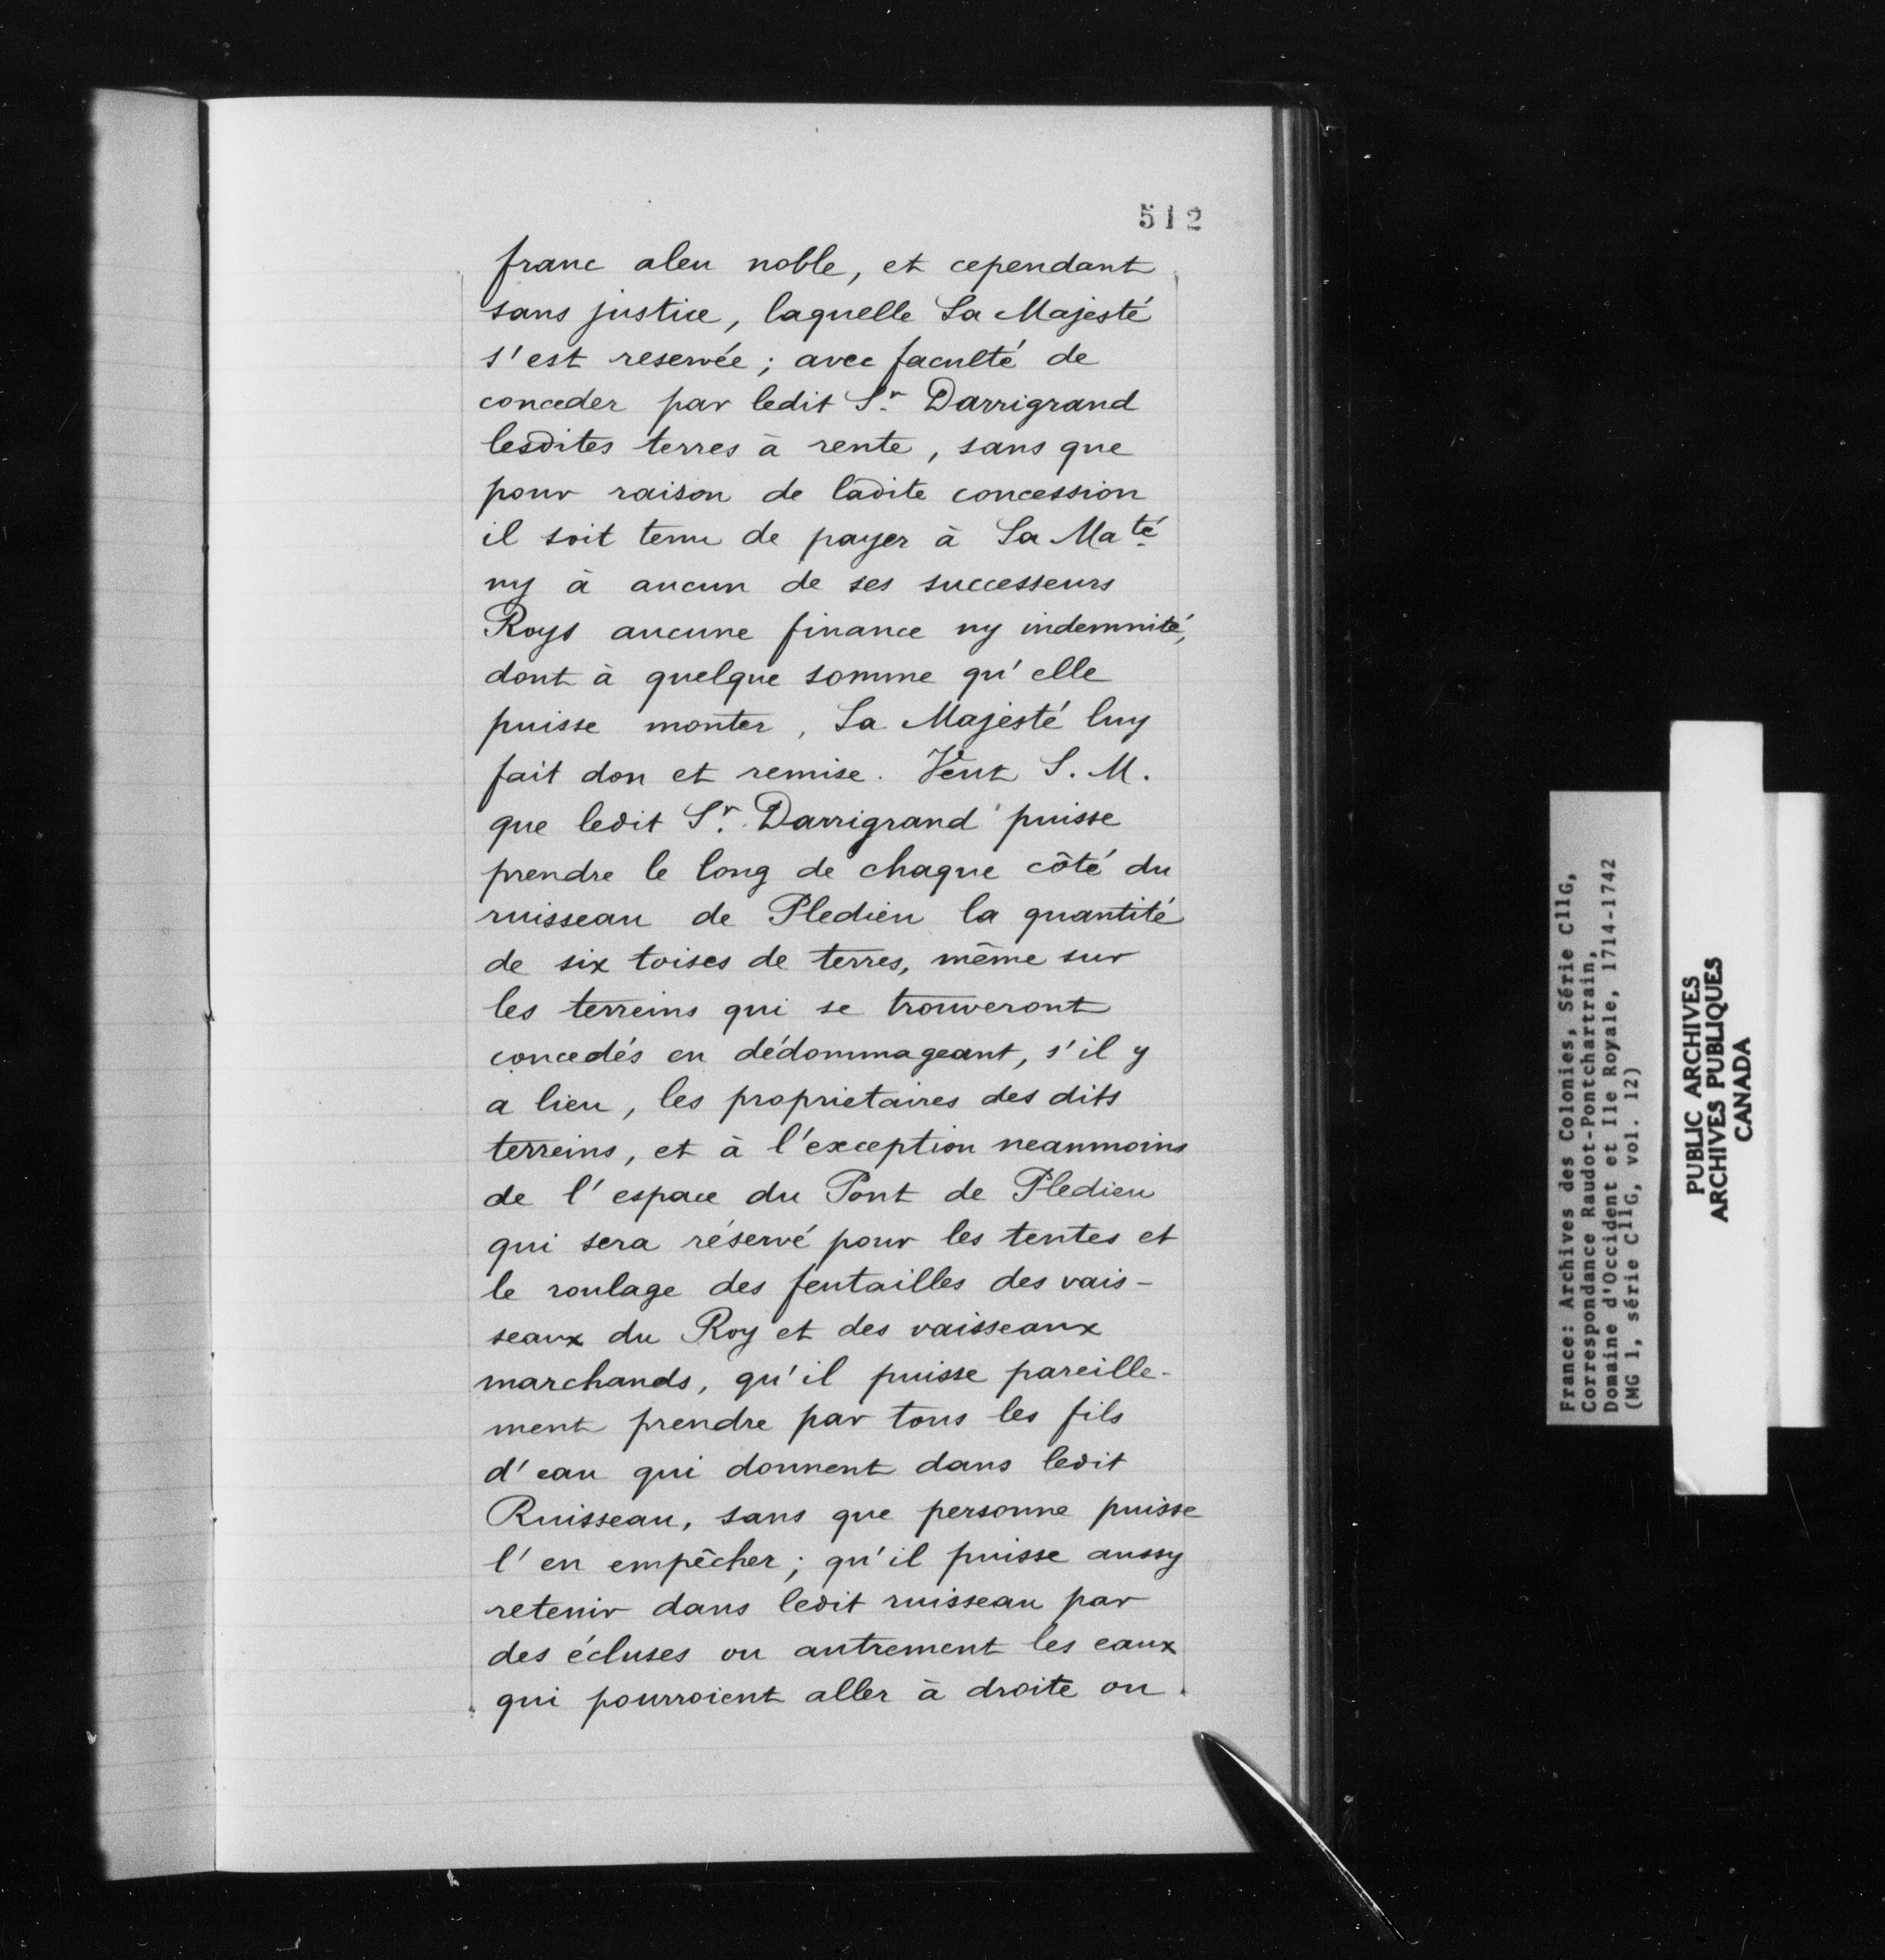 512
franc aleu noble, et cependant
sans justice, laquelle Sa Majesté
s'est reservée; avec faculté de
conceder par ledit Sr. Darrigrand
lesdites terres à rente, sans que
pour raison de ladite concession
il soit tenu de payer à Sa Maté
ny à aucun de ses successeurs
Roys aucune finance ny indemnité,
dont à quelque somme qu'elle
puisse monter, Sa Majesté luy
fait don et remise. Veut S. M.
que ledit Sr. Darrigrand puisse
prendre le long de chaque côté du
ruisseau de Pledieu la quantité
de six toises de terres, même sur
les terreins qui se trouveront
concedés en dédommageant, s'il y
a lieu, les proprietaires des dits
terreins, et à l'exception neanmoins
de l'espace du Pont de Pledieu
qui sera réservé pour les tentes et
le roulage des feutailles des vais-
seaux du Roy et des vaisseaux
marchands, qu'il puisse pareille-
ment prendre par tous les fils
d'eau qui donnent dans ledit
Ruisseau, sans que personne puisse
l'en empêcher; qu'il puisse aussy
retenir dans ledit ruisseau par
des écluses ou autrement les eaux
qui pourroient aller à droite ou
France: Archives des Colonies, Série C11G,
Correspondance Raudot-Pontchartrain,
Domaine d'Occident et Ile Royale, 1714-1742
(MG 1, série C11G, vol. 12)
PUBLIC ARCHIVES
ARCHIVES PUBLIQUES
CANADA